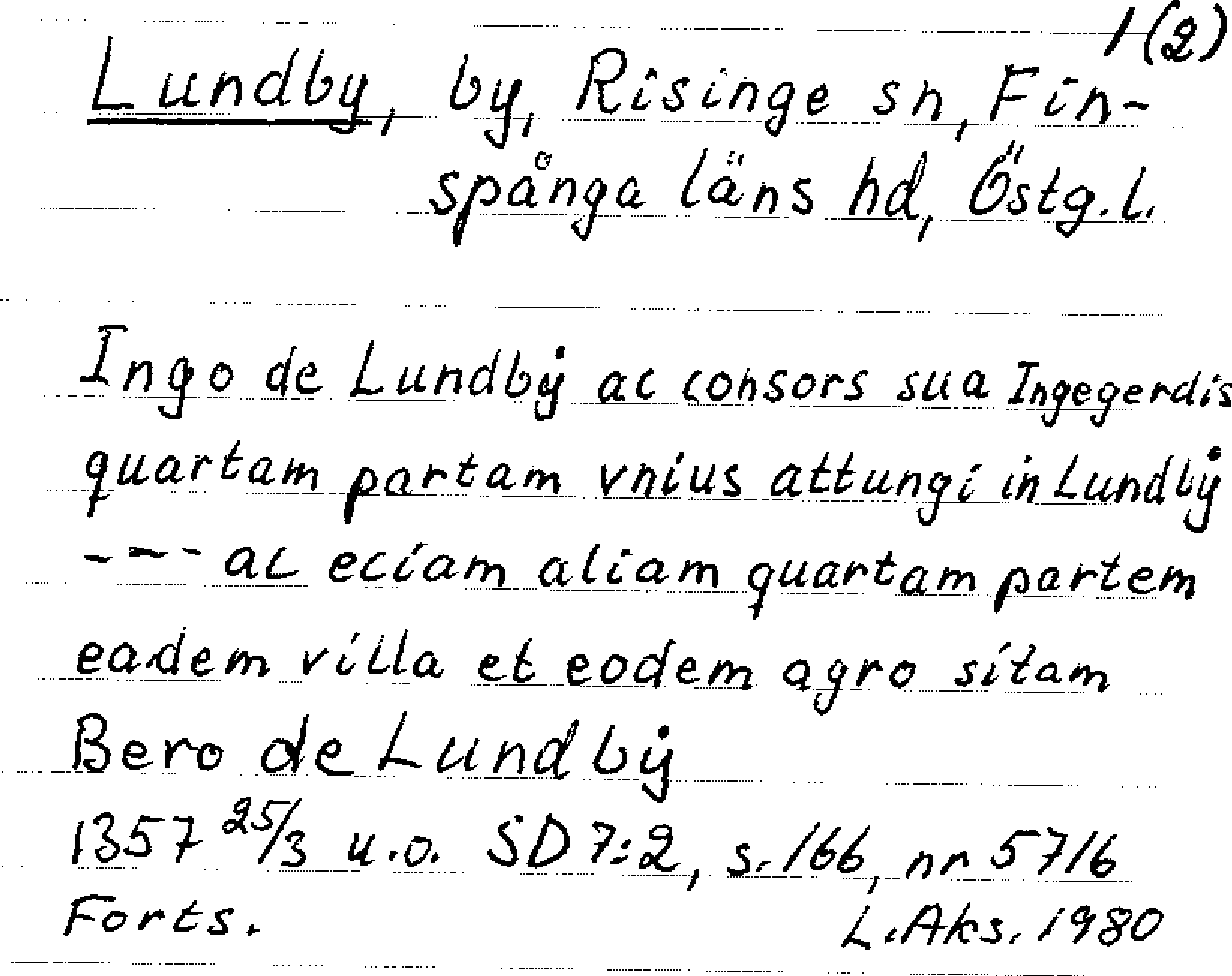 1(2)
Lundby, by, Risinge sn, Fin-
spånga läns hd, Östg.l.
Ingo de Lundbẏ ac consors sua Ingegerdis
quartam partam vnius attungi in Lundbẏ
--- ac eciam aliam quartam partem
eadem villa et eodem agro sitam
Bero de Lundbẏ
1357 25/3 u.o. SD 7:2, s. 166, nr 5716
Forts. L.Aks. 1980